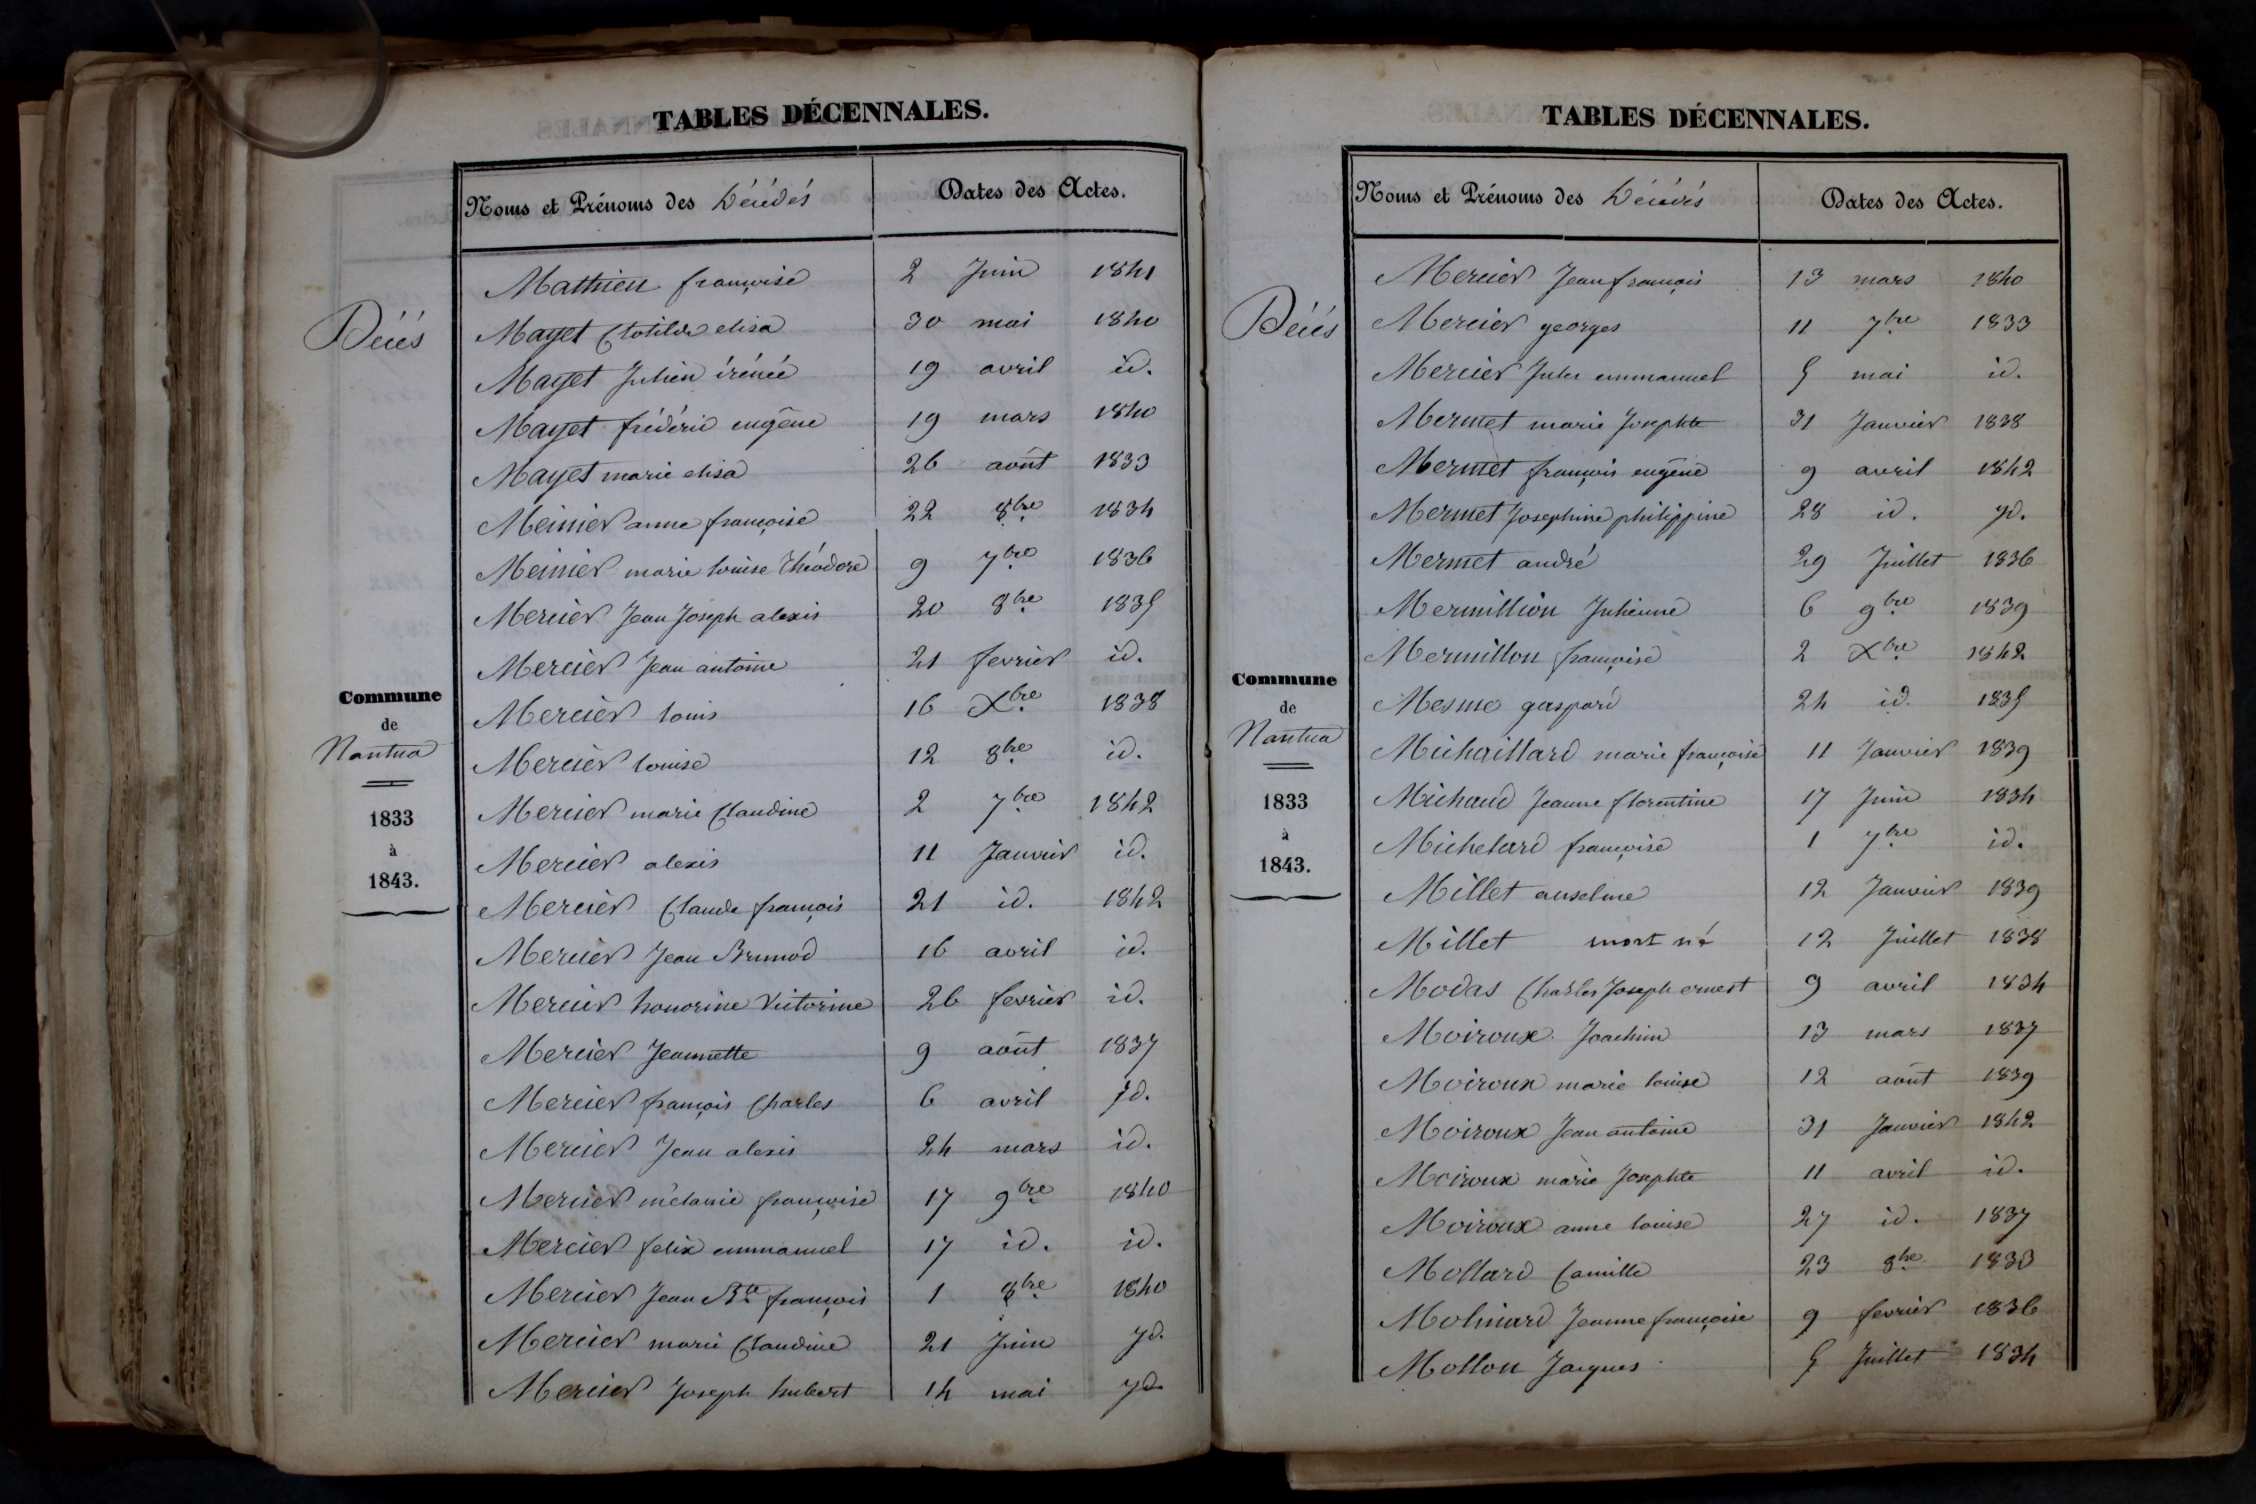 TABLES DÉCENNALES.
Noms et Prénoms des Décédés Dates des Actes.
Décés
Commune
de
Nantua
1833
à
1843.
Mathieu françoise 2 Juin 1841
Mayet Clotilde elisa 30 mai 1840
Mayet Julien irénée 19 avril id.
Mayet frédéric eugêne 19 mars 1840
Mayet marie elisa 26 août 1833
Meinier anne françoise 22 8bre 1834
Meinier marie louise Théodore 9 7bre 1836
Mercier Jean Joseph alexis 20 8bre 1835
Mercier Jean antoine 21 fevrier id.
Mercier louis 16 Xbre 1838
Mercier louise 12 8bre id.
Mercier marie Claudine 2 7bre 1842
Mercier alexis 11 Janvier id.
Mercier Claude françois 21 id. 1842
Mercier Jean Brunod 16 avril id.
Mercier honorine Victorine 26 fevrier id.
Mercier Jeannette 9 août 1837
Mercier françois Charles 6 avril id.
Mercier Jean alexis 24 mars id.
Mercier mélanie françoise 17 9bre 1840
Mercier felix emmanuel 17 id. id.
Mercier Jean Bte françois 1 8bre 1840
Mercier marie Claudine 21 Juin yd.
Mercier Joseph hubert 14 mai yd.
TABLES DÉCENNALES.
Noms et Prénoms des Décédés Dates des Actes.
Décés
Commune
de
Nantua
1833
à
1843.
Mercier Jean françois 13 mars 1840
Mercier georges 11 7bre 1833
Mercier Jules emmanuel 5 mai id.
Mermet marie Josephte 31 Janvier 1838
Mermet françois eugêne 9 avril 1842
Mermet Josephine philippine 28 id. yd.
Mermet andré 29 Juillet 1836
Mermillion Julienne 6 9bre 1839
Mermillon françoise 2 Xbre 1842
Mesme gaspard 24 id. 1835
Michaillard marie françoise 11 Janvier 1839
Michaud Jeanne florentine 17 Juin 1834
Michelard françoise 1 7bre id.
Millet anselme 12 Janvier 1839
Millet mort né 12 Juillet 1838
Modas Charles Joseph ernest 9 avril 1834
Moiroux Joachim 13 mars 1837
Moiroux marie louise 12 août 1839
Moiroux Jean antoine 31 Janvier 1842
Moiroux marie Josephte 11 avril id.
Moiroux anne louise 27 id. 1837
Mollard Camille 23 8bre 1833
Molinard Jeanne françoise 9 fevrier 1836
Mollon Jacques 5 Juillet 1834